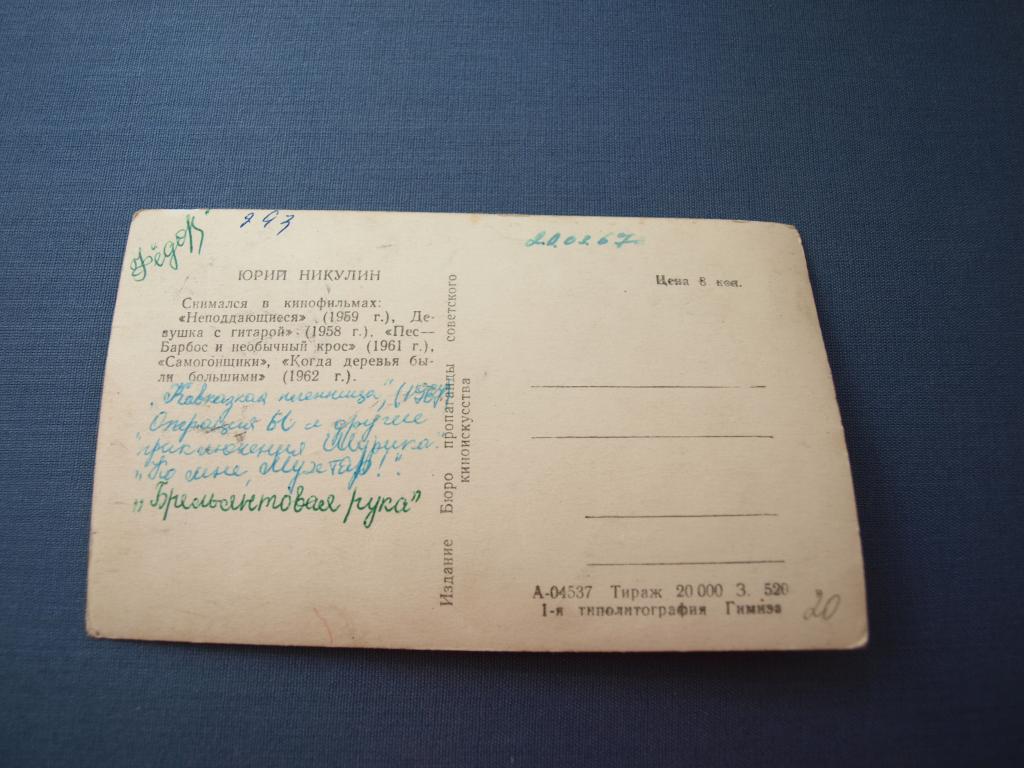 Фёдор
293
20.02.67
ЮРИЙ НИКУЛИН
Снимался в кинофильмах:
«Неподдающиеся» (1959 г.), Де-
вушка с гитарой» (1958 г.), «Пес—
Барбос и необычный крос» (1961 г.),
«Самогонщики», «Когда деревья бы-
ли большими» (1962 г.).
„Кавказкая пленница", (1967)
Операция Ы и другие
"приключения Шурика"
„Ко мне, Мухтар!".
„Брельянтовая рука"
Издание Бюро пропаганды советского
киноискусства
Цена 8 коп.
А-04537 Тираж 20 000 З. 520
1-я типолитография Гимиза
20